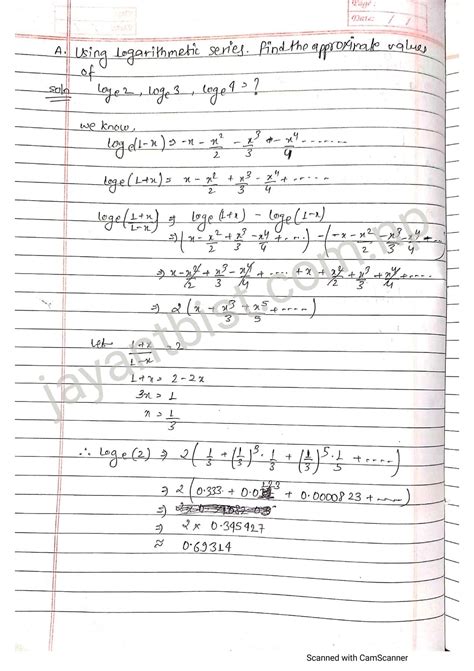 Page:
Date: / /
A. Using Logarithmetic series. Find the approximate values
of
soln loge2, loge3, loge4 = ?
we know,
loge(1-x) ⇒ -x - x²/2 - x³/3 - x⁴/4 ......
loge(1+x) = x - x²/2 + x³/3 - x⁴/4 + ......
loge(1+x/1-x) ⇒ loge(1+x) - loge(1-x)
⇒ (x - x²/2 + x³/3 - x⁴/4 + ....) - (-x - x²/2 - x³/3 - x⁴/4 ...
⇒ x - x²/2 + x³/3 - x⁴/4 + .... + x + x²/2 + x³/3 + x⁴/4 ....
⇒ 2(x + x³/3 + x⁵/5 + .....)
let 1+x/1-x = 2
1+x = 2-2x
3x = 1
x = 1/3
∴ loge(2) ⇒ 2(1/3 + (1/3)³·1/3 + (1/3)⁵·1/5 + .....)
⇒ 2(0.333 + 0.0123 + 0.0000823 + ....)
⇒
⇒ 2 x 0.345427
≈ 0.69314
jayantbist.com.np
Scanned with CamScanner